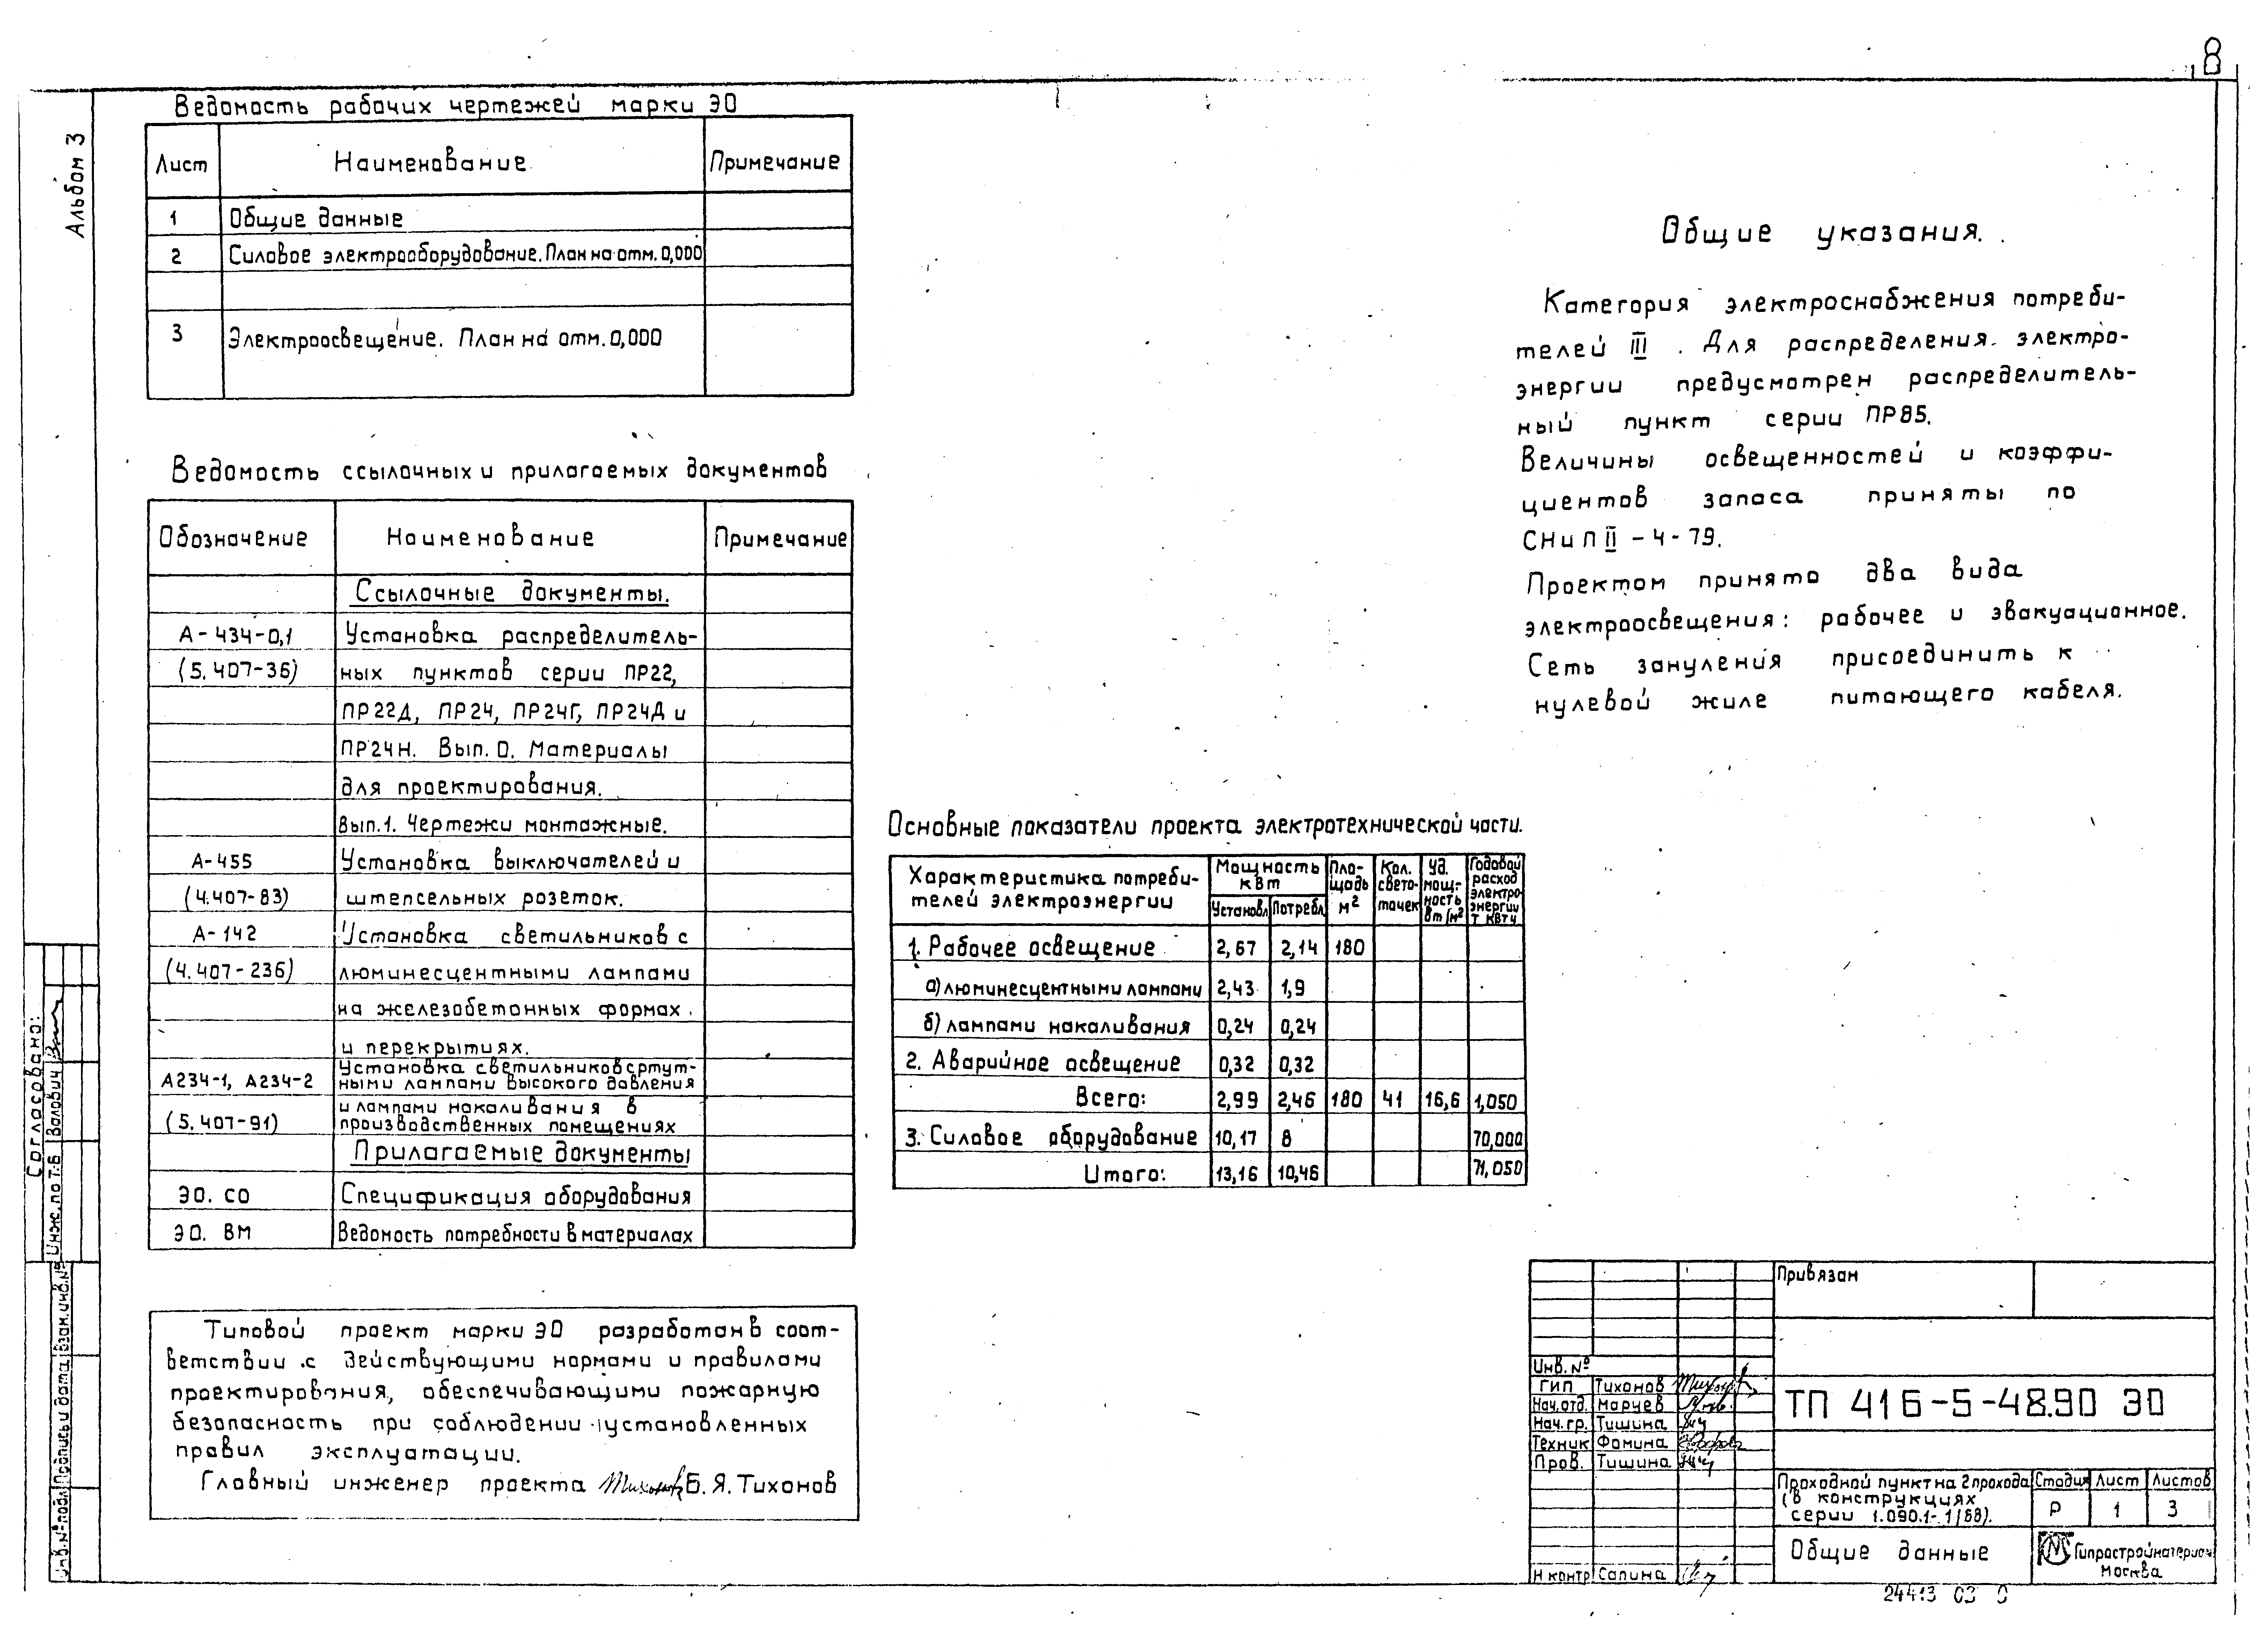 8
Альбом 3
Ведомость рабочих чертежей марки ЭО
Лист Наименование Примечание
1 Общие данные
2 Силовое электрооборудование. План на отм. 0,000
3 Электроосвещение. План на отм. 0,000
Ведомость ссылочных и прилагаемых документов
Обозначение Наименование Примечание
Ссылочные документы.
А-434-0,1 Установка распределитель-
(5.407-36) ных пунктов серии ПР22,
ПР22Д, ПР24, ПР24Г, ПР24Д и
ПР24Н. Вып. 0. Материалы
для проектирования.
Вып.1. Чертежи монтажные.
А-455 Установка выключателей и
(4.407-83) штепсельных розеток.
А-142 Установка светильников с
(4.407-236) люминесцентными лампами
на железобетонных формах
и перекрытиях.
Установка светильников с ртут-
А234-1, А234-2 ными лампами высокого давления
и лампами накаливания в
(5.407-91) производственных помещениях
Прилагаемые документы
ЭО. СО Спецификация оборудования
ЭО. ВМ Ведомость потребности в материалах
Типовой проект марки ЭО разработан в соот-
ветствии с действующими нормами и правилами
проектирования, обеспечивающими пожарную
безопасность при соблюдении установленных
правил эксплуатации.
Главный инженер проекта Б. Я. Тихонов
Общие указания.
Категория электроснабжения потреби-
телей III. Для распределения электро-
энергии предусмотрен распределитель-
ный пункт серии ПР85.
Величины освещенностей и коэффи-
циентов запаса приняты по
СНиП II-4-79.
Проектом принято два вида
электроосвещения: рабочее и эвакуационное.
Сеть зануления присоединить к
нулевой жиле питающего кабеля.
Основные показатели проекта электротехнической части.
Характеристика потреби-
телей электроэнергии
Мощность
кВт
Установл Потребл
Пло-
щадь
м²
Кол.
свето-
точек
Уд.
мощ-
ность
Вт/м²
Годовой
расход
электро-
энергии
т. кВт ч
1. Рабочее освещение 2,67 2,14 180
а) люминесцентными лампами 2,43 1,9
б) лампами накаливания 0,24 0,24
2. Аварийное освещение 0,32 0,32
Всего: 2,99 2,46 180 41 16,6 1,050
3. Силовое оборудование 10,17 8 70,000
Итого: 13,16 10,46 71,050
Согласовано:
Инж. по Т.Б Валович
Инв. № подл Подпись и дата Взам. инв. №
Привязан
Инв. №
ГИП Тихонов
Нач. отд. Маруев
Нач. гр. Тишина
Техник Фомина
Пров. Тишина
Н контр Сапина
ТП 416-5-48.90 ЭО
Проходной пункт на 2 прохода
(в конструкциях
серии 1.090.1-1/88).
Стадия Лист Листов
Р 1 3
Общие данные
Гипростройматериал
Москва
24413 03